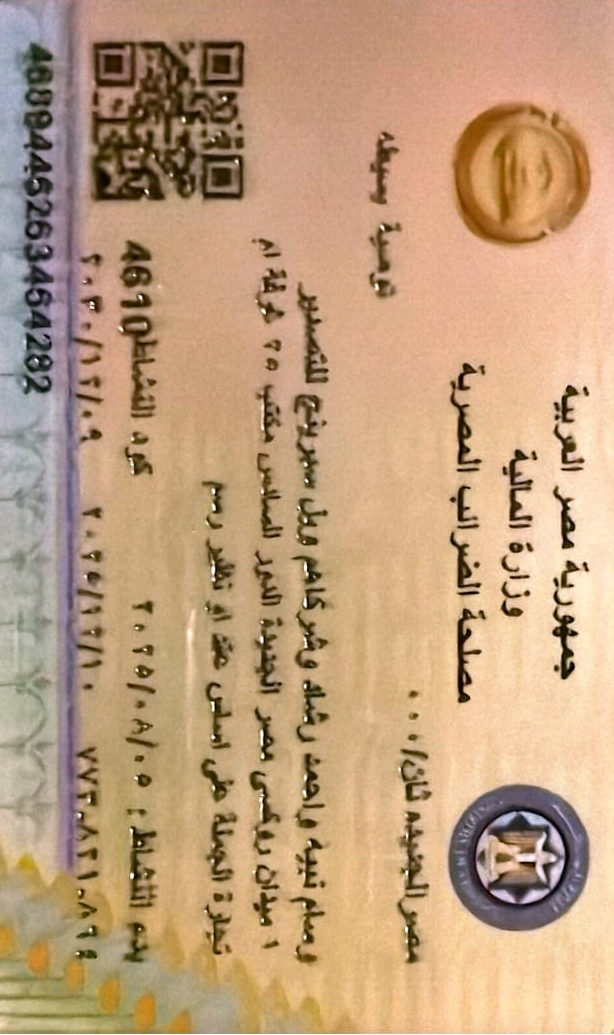 جمهورية مصر العربية
وزارة المالية
مصلحة الضرائب المصرية
مصر الجديده ثان/٠٠٠
توصية وسيطه
وسام نبيه واحمد رشاد وشركاهم ويل سبرينج للتصدير
١ ميدان روكسى مصر الجديدة الدور السادس مكتب ٢٥ غرفة ام
تجارة الجملة على اساس عقد او نظير رسم
بدء النشاط : ٢٠٢٥/٠٨/٠٥ كود النشاط 4610
٢٠٢٥/١٢/١٠ ٢٠٣٠/١٢/٠٩